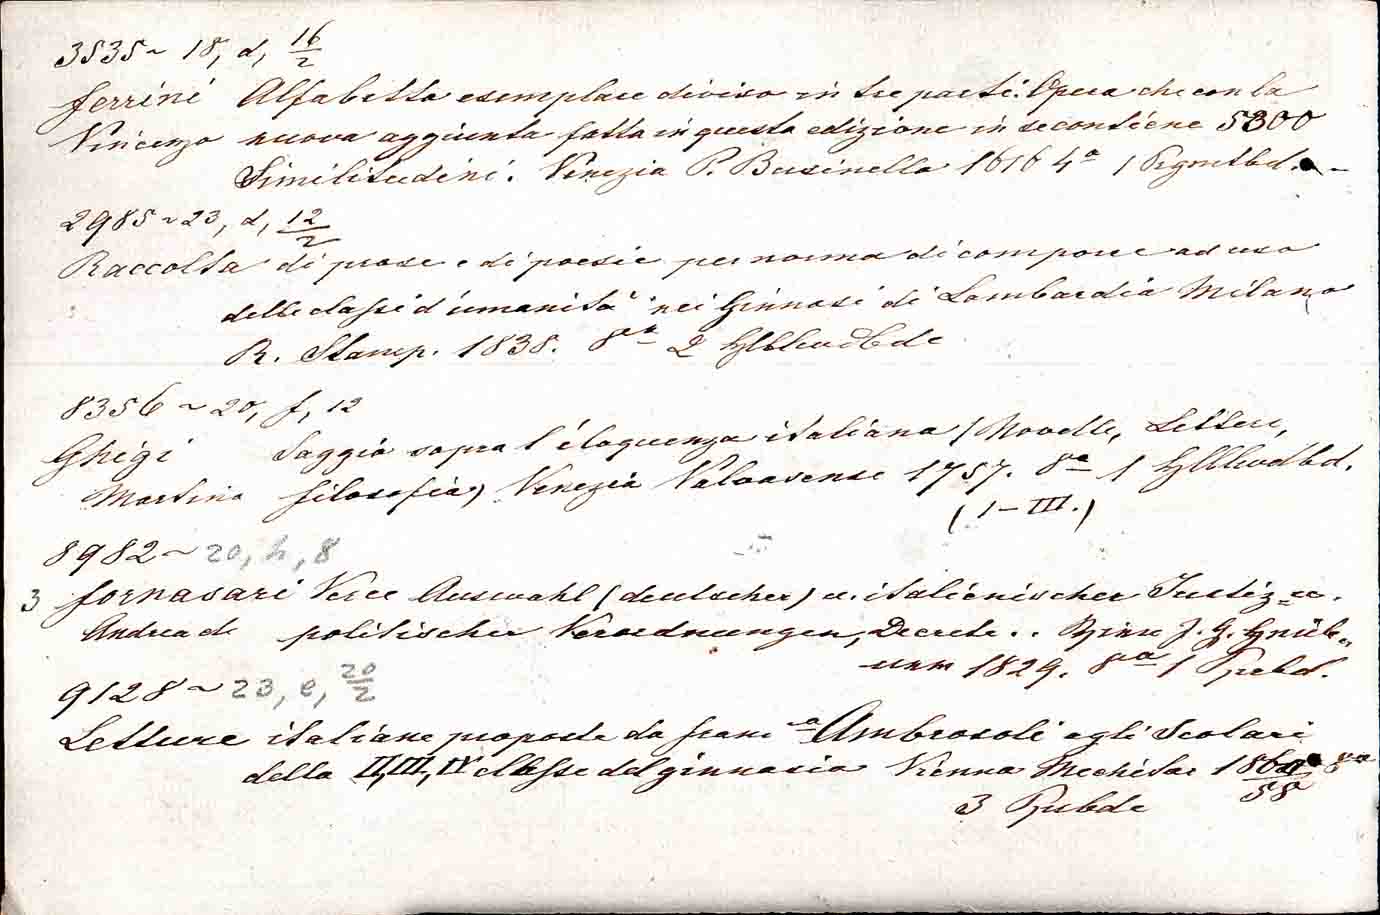 3535~ 18, d, 16/2
Ferrini Alfabetto esemplare diviso in tre parti. Opera che con la
Vincenzo nuova aggiunta fatta in questa edizione in se contiene 5300
Similitudini. Venezia P. Businello 1616 4ª 1 Pgmtbd.
2985~23, d, 12/2
Raccolta di prose e di poesie per norma di comporre ad uso
delle classi d'umanità nei Ginnasi di Lombardia Milano
R. Stamp. 1838. 8ª 2 Hlblwdbde
8356~20, f, 12
Ghigi Saggio sopra l'éloquenza italiana (Novelle, Lettere,
Martino filosofia) Venezia Valvasense 1757. 8ª 1 Hlblwdbd.
(I–III.)
8982~20, h, 8
3 Fornasari Verce Auswahl (deutscher) u. italienischer Justiz= u.
Andrea de politischer Verordnungen, Decrete.. J. G.
1829. 8ª 1 Ppbd.
9128~23, e, 20/2
Letture italiane proposte da Franc Ambrosoli agli Scolari
della II, III, IV classe del ginnasio Vienna Mechitar 8ª
58
3 Ppbde